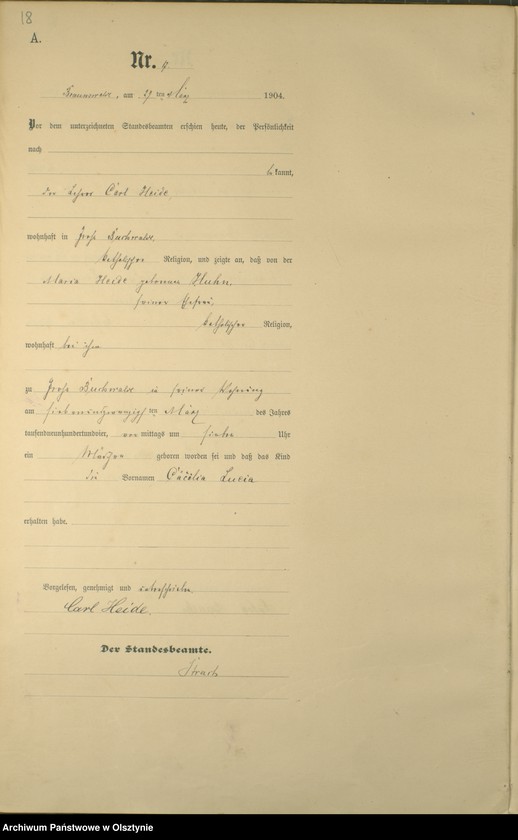 18
A.
Nr. 9.
Braunswalde, am 29 ten März 1904.
Vor dem unterzeichneten Standesbeamten erschien heute, der Persönlichkeit
nach
bekannt,
der Lehrer Carl Heide,
wohnhaft in Groß Buchwalde,
katholischer Religion, und zeigte an, daß von der
Maria Heide geborenen Huhn,
seiner Ehefrau,
katholischer Religion,
wohnhaft bei ihm
zu Groß Buchwalde in seiner Wohnung
am siebenundzwanzigsten März des Jahres
tausendneunhundert vor mittags um sieben Uhr
ein Mädchen geboren worden sei und daß das Kind
die Vornamen Cäcilia Lucia
erhalten habe.
Vorgelesen, genehmigt und unterschrieben
Carl Heide.
Der Standesbeamte.
Archiwum Państwowe w Olsztynie